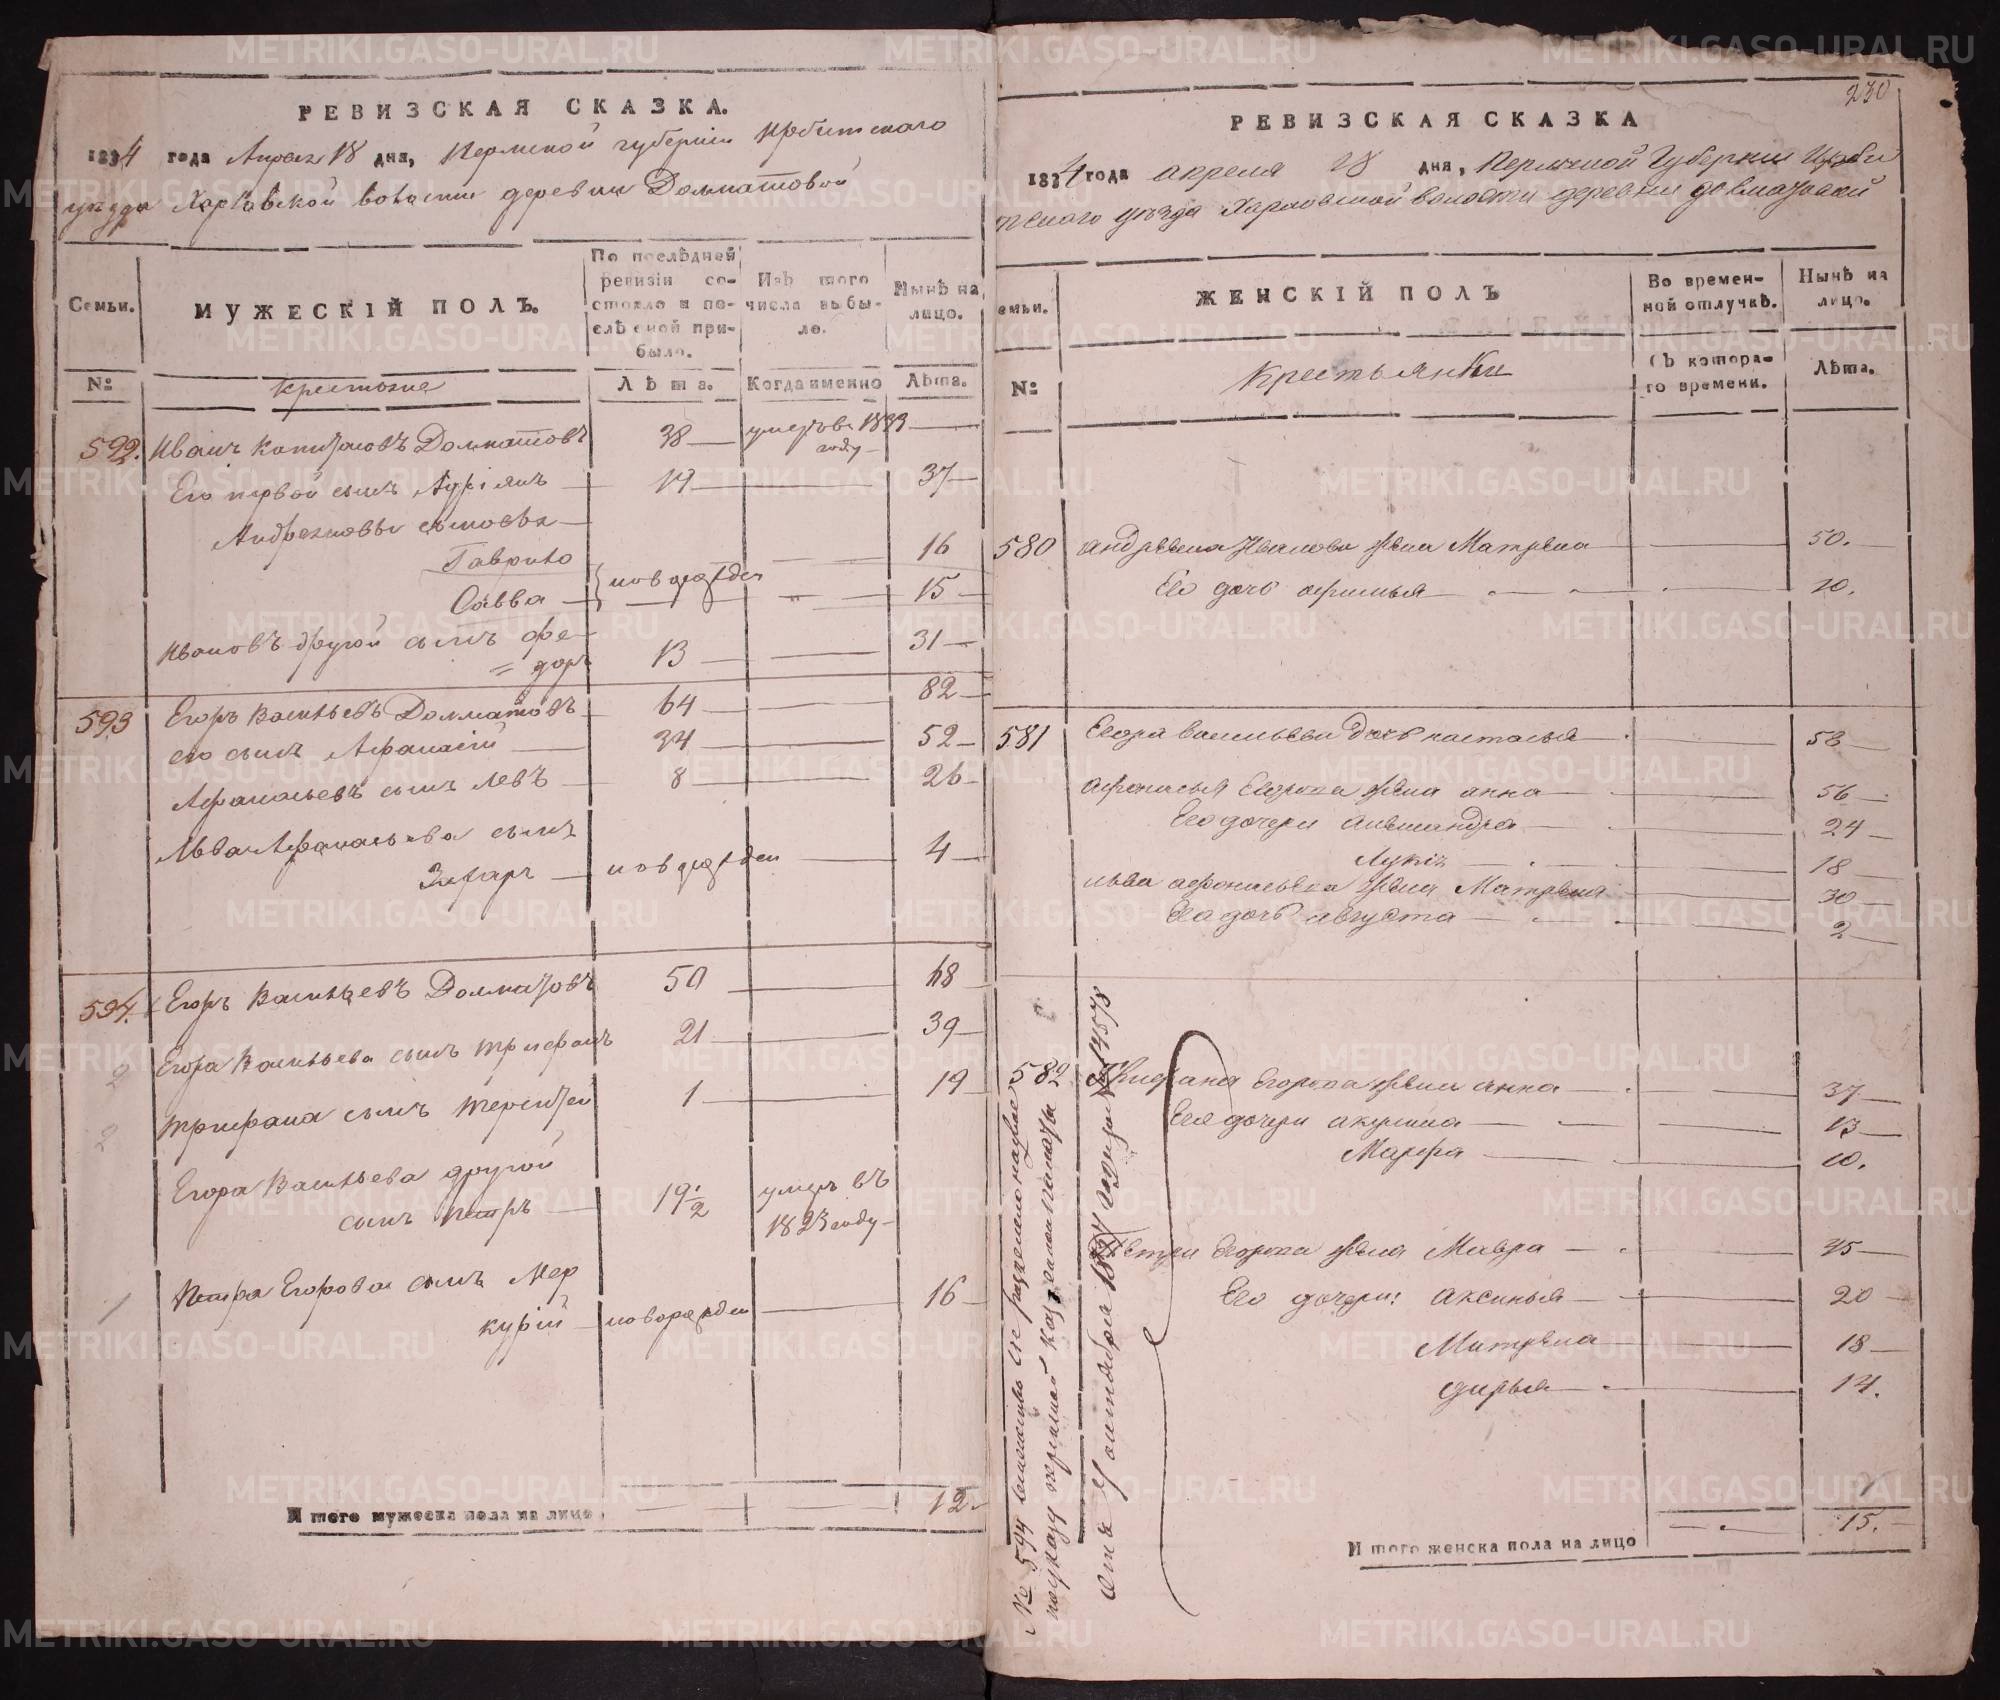 РЕВИЗСКАЯ СКАЗКА.
1834 года Апреля 18 дня, Пермской губернии Ирбитского
уезда Харловской волости деревни Долматовой
Семьи.
МУЖЕСКІЙ ПОЛЪ.
По послѣдней ревизіи состояло и послѣ оной прибыло.
Изъ того числа выбыло.
Нынѣ на лицо.
№
Крестьяне
Лѣта.
Когда именно
Лѣта.
592. Иванъ Долматовъ 38 умеръ в 1833 году
Его первой сынъ 19 37
сыновья
Гаврило 16
Савва новорожден 15
Ивановъ другой сынъ Фе=
=доръ 13 31
593 Егоръ Васильевъ Долматовъ 64 82
его сынъ Афанасій 34 52
Афанасьевъ сынъ Левъ 8 26
Льва Афанасьева сынъ
Захаръ новорожден 4
594. Егоръ Васильевъ Долматовъ 50 68
Егора Васильева сынъ Трифанъ 21 39
2
Трифана сынъ Терентей 1 19
2
Егора Васильева другой
сынъ Петръ 19 1/2 умеръ въ 1823 году
Петра Егорова сынъ Мер
1
курій новорожден 16
Итого мужеска пола на лицо 12.
230
РЕВИЗСКАЯ СКАЗКА
1834 года апреля 18 дня, Пермской Губернии Ирби
тского уезда Харловской волости деревни Довматовой
семьи.
ЖЕНСКІЙ ПОЛЪ
Во временной отлучкѣ.
Нынѣ на лицо.
№
Крестьянки
Съ котораго времени.
Лѣта.
580 Иванова жена Матрена 50.
Его дочь 10.
581 Егора Васильева дочь настасья 53
афонасья Егорова жена анна 56
Его дочери александра 24
18
льва афонасьева жена Матрена 30
Его дочь августа 2
582 Егорова жена анна 37
Его дочери акулина 13
Марфа 10.
Егорова жена Мавра 45
Его дочери: аксинья 20
Матрена 18
дарья 14.
№ 594 сие разделено надвое
по указу пермской казенной палаты
от 4 сентября № 14578
Итого женска пола на лицо 15.
METRIKI.GASO-URAL.RU